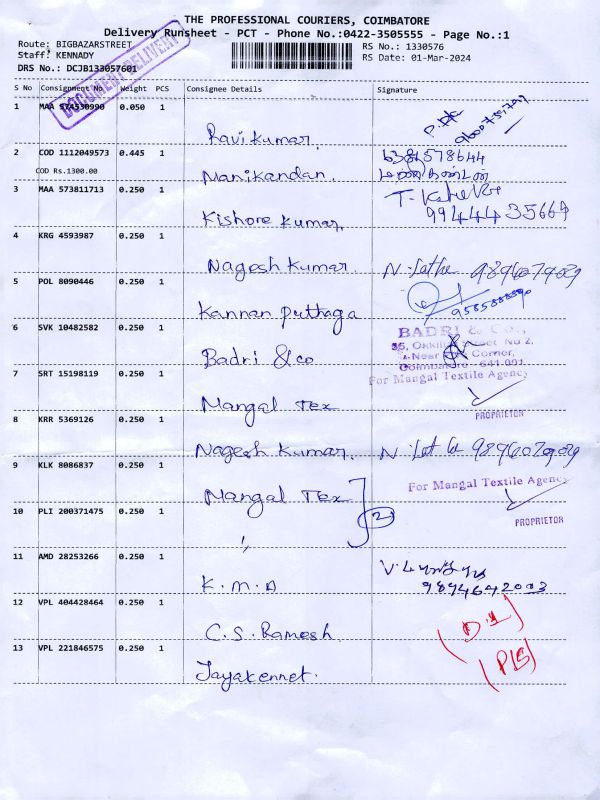 THE PROFESSIONAL COURIERS, COIMBATORE
Delivery Runsheet - PCT - Phone No.:0422-3505555 - Page No.:1
Route: BIGBAZARSTREET
RS No.: 1330576
Staff: KENNADY
RS Date: 01-Mar-2024
DRS No.: DCJB133057601
DOCUMENT DELIVERY
S No Consignment No Weight PCS Consignee Details Signature
1 MAA 574530990 0.050 1
Ravi kumar.
2 COD 1112049573 0.445 1
6381578644
COD Rs.1300.00
Manikandan. மணிகண்டன்
3 MAA 573811713 0.250 1
Kishore kumar. 9944435669
4 KRG 4593987 0.250 1
Nagesh kumar.
5 POL 8090446 0.250 1
Kannan puthaga
6 SVK 10482582 0.250 1
BADRI & Co.,
35, Street No 2,
Near Corner,
Badri & co Coimbatore - 641 001
7 SRT 15198119 0.250 1
For Mangal Textile Agency
Mangal Tex
PROPRIETOR
8 KRR 5369126 0.250 1
Nagesh kumar.
9 KLK 8086837 0.250 1
For Mangal Textile Agency
Mangal Tex
10 PLI 200371475 0.250 1
2
PROPRIETOR
"
11 AMD 28253266 0.250 1
K.M.A 9894642003
12 VPL 404428464 0.250 1
C.S. Ramesh.
13 VPL 221846575 0.250 1
Jayakennet.